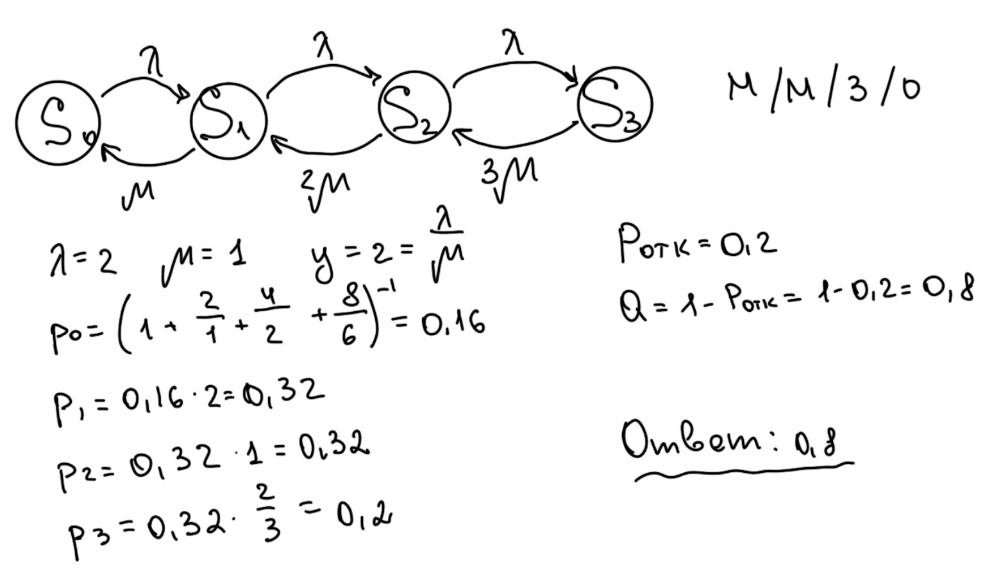 λ λ λ
S₀ S₁ S₂ S₃ M/M/3/0
μ 2μ 3μ
λ = 2 μ = 1 y = 2 = λ/μ
p₀ = (1 + 2/1 + 4/2 + 8/6)⁻¹ = 0,16
p₁ = 0,16 · 2 = 0,32
p₂ = 0,32 · 1 = 0,32
p₃ = 0,32 · 2/3 = 0,2
Pотк = 0,2
Q = 1 - Pотк = 1 - 0,2 = 0,8
Ответ: 0,8